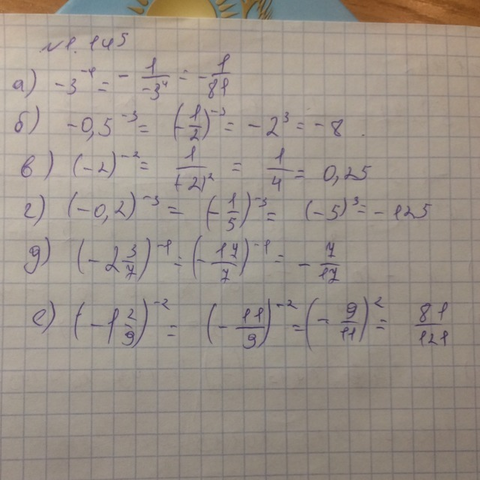 №1.145
а) -3^{-4} = - \frac{1}{-3^4} = -\frac{1}{81}
б) -0,5^{-3} = (-\frac{1}{2})^{-3} = -2^3 = -8.
в) (-2)^{-2} = \frac{1}{(-2)^2} = \frac{1}{4} = 0,25
г) (-0,2)^{-3} = (-\frac{1}{5})^{-3} = (-5)^3 = -125
д) (-2\frac{3}{7})^{-1} = (-\frac{17}{7})^{-1} = -\frac{7}{17}
е) (-1\frac{2}{9})^{-2} = (-\frac{11}{9})^{-2} = (-\frac{9}{11})^2 = \frac{81}{121}